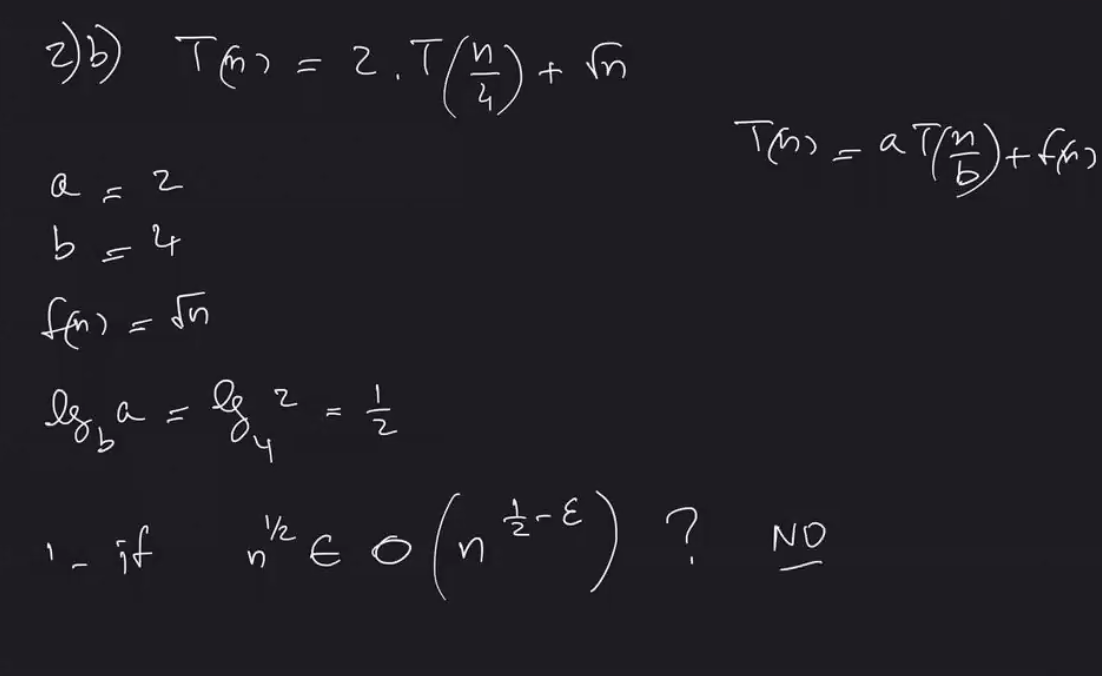 2)b) T(n) = 2.T(n/4) + √n
T(n) = aT(n/b) + f(n)
a = 2
b = 4
f(n) = √n
lg_b a = lg_4 2 = 1/2
1- if n^(1/2) ∈ O(n^(1/2 - ε)) ? NO